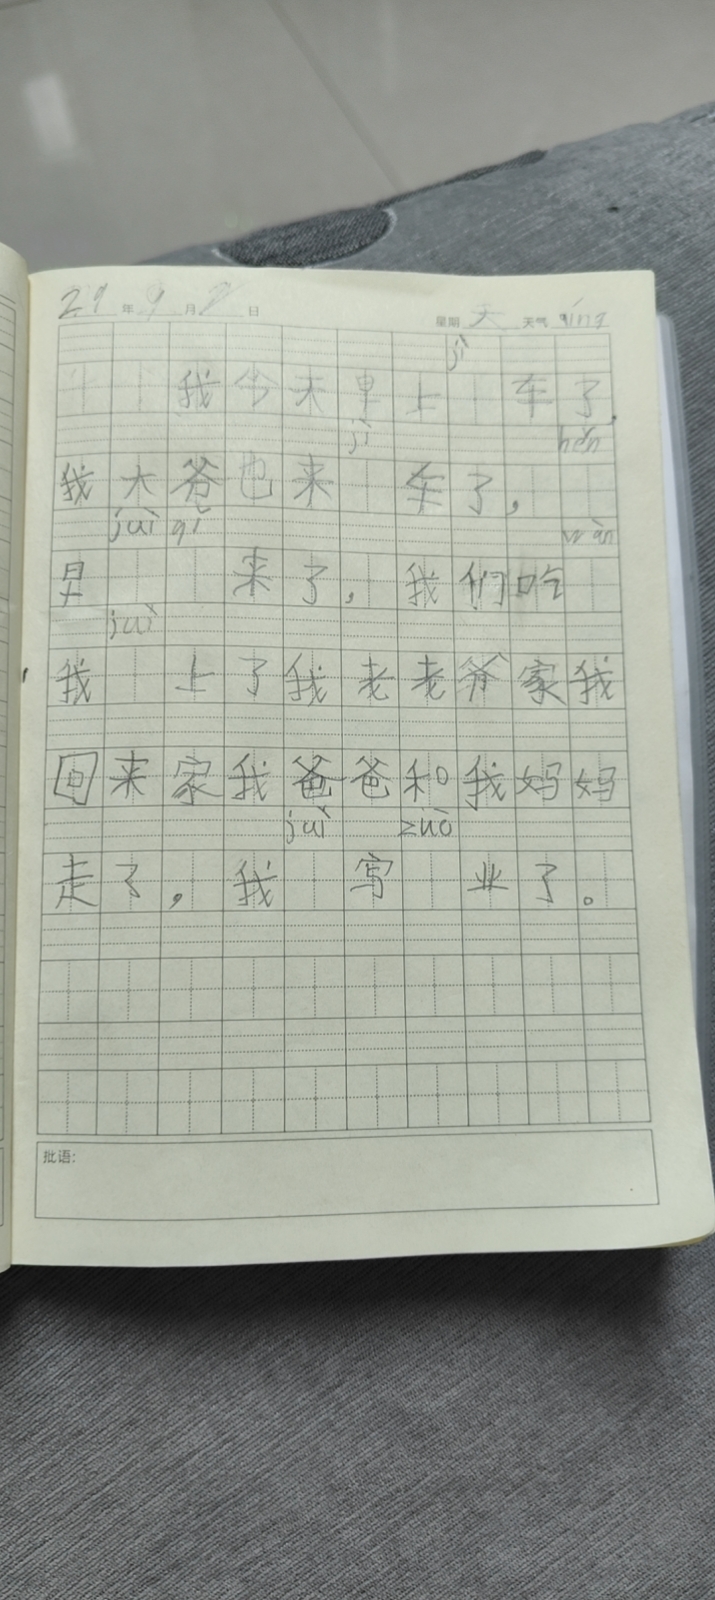 年 9 月 日 星期 天 天气 qíng
jì
我今天早上 车了,
jì hěn
我大爷也来 车了,
juì qǐ wàn
早 来了, 我们吃
juì
我 上了我老老爷家我
回来家我爸爸和我妈妈
juì zuò
走了, 我 写 业了。
批语: